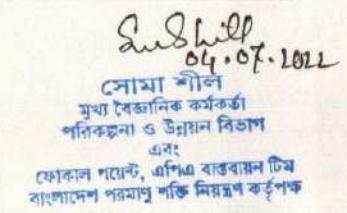 04.07.2022
সোমা শীল
মুখ্য বৈজ্ঞানিক কর্মকর্তা
পরিকল্পনা ও উন্নয়ন বিভাগ
এবং
ফোকাল পয়েন্ট, এপিএ বাস্তবায়ন টিম
বাংলাদেশ পরমাণু শক্তি নিয়ন্ত্রণ কর্তৃপক্ষ